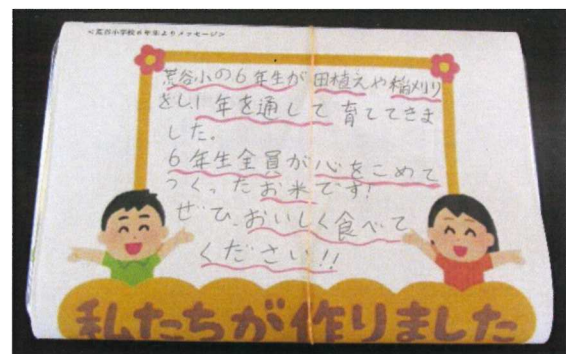 <荒谷小学校6年生よりメッセージ>
荒谷小の6年生が田植えや稲刈り
をし1年を通して育ててきま
した。
6年生全員が心をこめて
つくったお米です!
ぜひ、おいしく食べて
ください!!
私たちが作りました